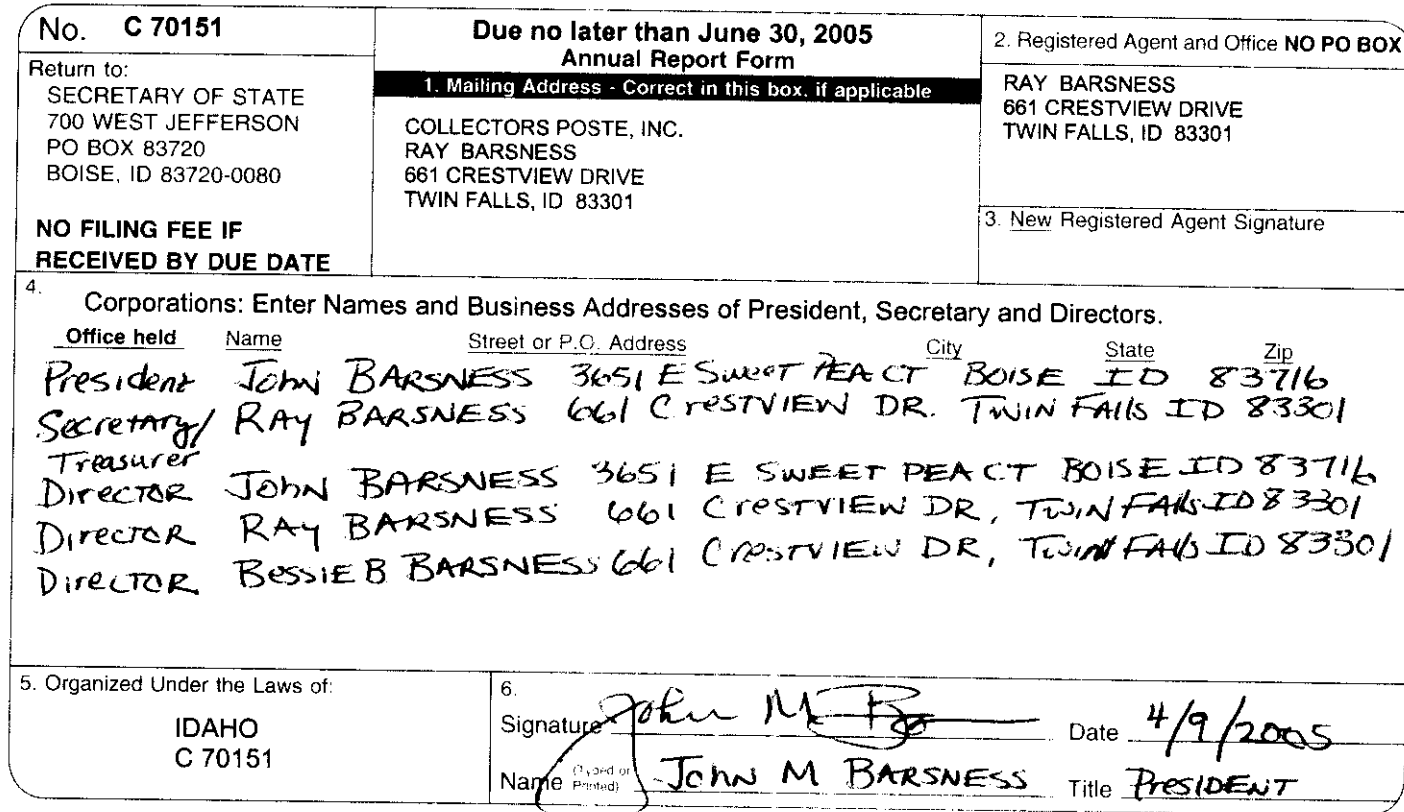 No. C 70151
Return to:
SECRETARY OF STATE
700 WEST JEFFERSON
PO BOX 83720
BOISE, ID 83720-0080
NO FILING FEE IF
RECEIVED BY DUE DATE
Due no later than June 30, 2005
Annual Report Form
1. Mailing Address - Correct in this box, if applicable
COLLECTORS POSTE, INC.
RAY BARSNESS
661 CRESTVIEW DRIVE
TWIN FALLS, ID 83301
2. Registered Agent and Office NO PO BOX
RAY BARSNESS
661 CRESTVIEW DRIVE
TWIN FALLS, ID 83301
3. New Registered Agent Signature
4.
Corporations: Enter Names and Business Addresses of President, Secretary and Directors.
Office held Name Street or P.O. Address City State Zip
President John BARSNESS 3651 E SweeT PEA CT BOISE ID 83716
Secretary/ RAy BARSNESS 661 CresTVIEW DR. TWIN FAlls ID 83301
Treasurer
DIrecTOR JOhN BARSNESS 3651 E SWEET PEA CT BOISE ID 83716
DIrecTOR RAy BARSNESS 661 CresTVIEW DR, TWIN FAlls ID 83301
DIrecTOR BessIE B BARSNESS 661 CresTVIEW DR, TWIN FAlls ID 83301
5. Organized Under the Laws of:
IDAHO
C 70151
6.
Signature John M Ba Date 4/9/2005
Name (Typed or Printed) JOHN M BARSNESS Title PresIDENT